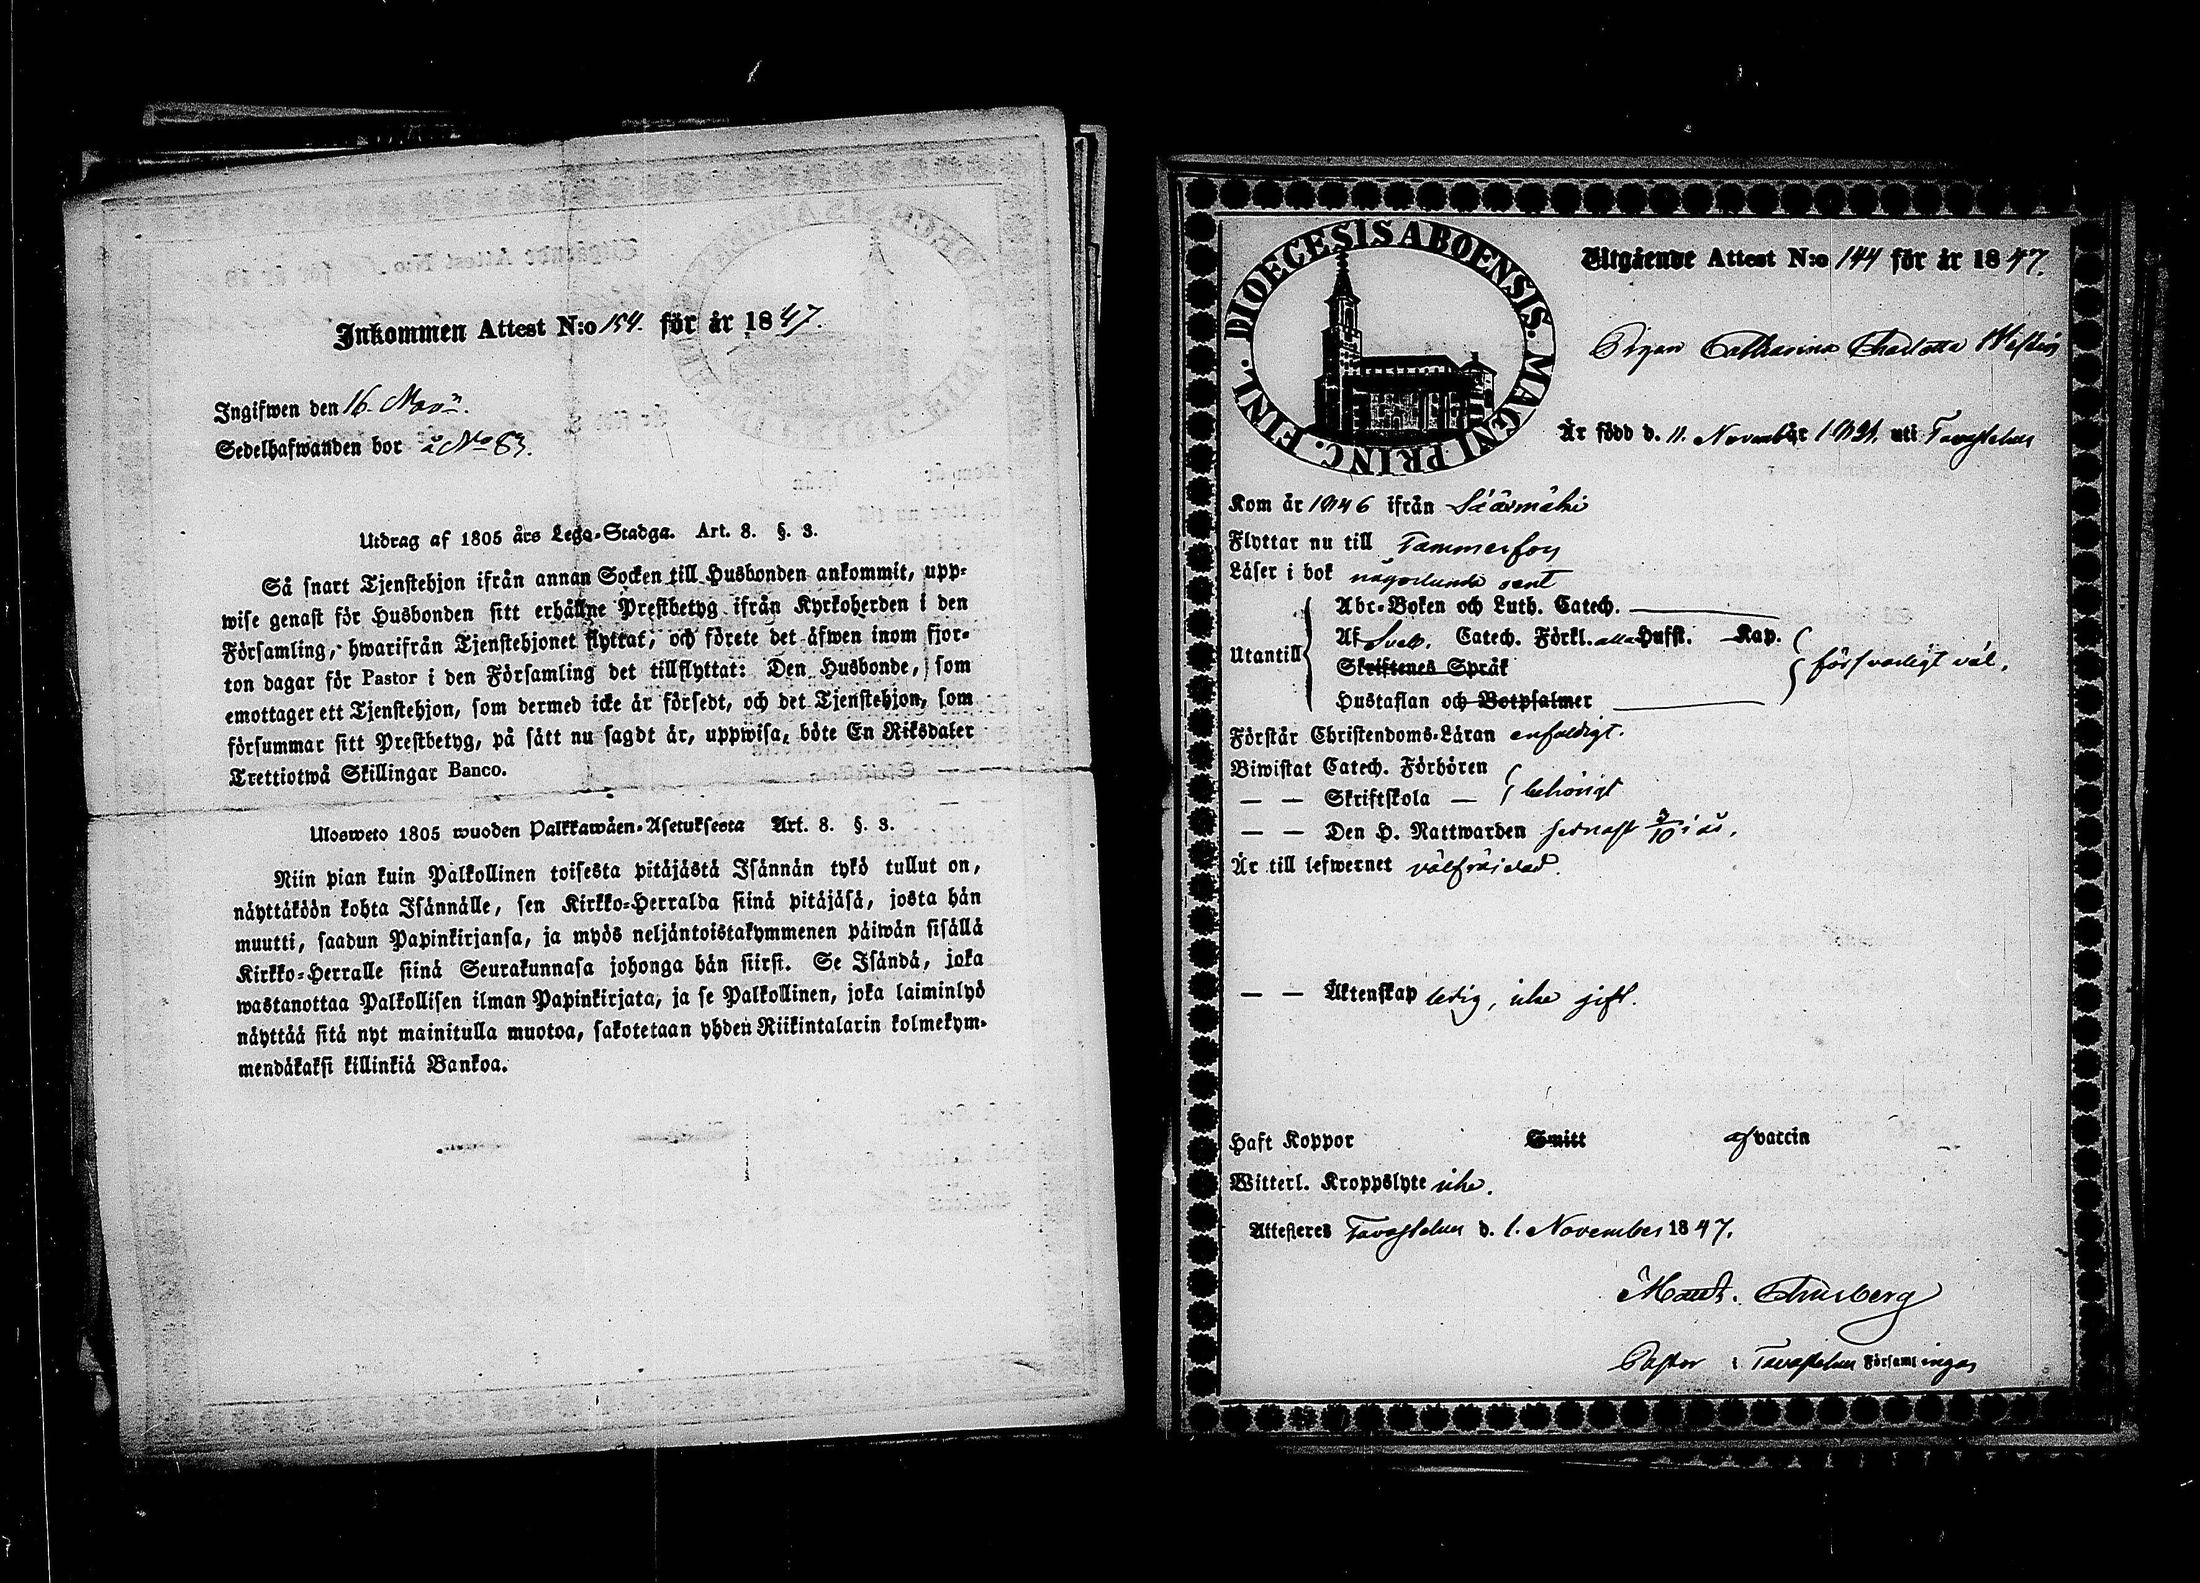 Inkommen Attest N:o 154. för år 1847.
Ingifwen den 16. Nov.
Sedelhafwanden bor å No 83.
Utdrag af 1805 års Lego-Stadga. Art. 8. §. 3.
Så snart Tjenstehjon ifrån annan Socken till Husbonden ankommit, upp-
wise genast för Husbonden sitt erhållne Prestbetyg ifrån Kyrkoherden i den
Församling, hwarifrån Tjenstehjonet flyttat, och förete det äfwen inom fjor-
ton dagar för Pastor i den Församling det tillflyttat: Den Husbonde, som
emottager ett Tjenstehjon, som dermed icke är försedt, och det Tjenstehjon, som
försummar sitt Prestbetyg, på sätt nu sagdt är, uppwisa, böte En Riksdaler
Trettiotwå Skillingar Banco.
Ulosweto 1805 wuoden Palkkawäen-Asetuksesta Art. 8. §. 3.
Niin pian kuin Palkollinen toisesta pitäjästä Isännän tykö tullut on,
näyttäköön kohta Isännälle, sen Kirkko-Herralda siinä pitäjäsä, josta hän
muutti, saadun Papinkirjansa, ja myös neljäntoistakymmenen päiwän sisällä
Kirkko-Herralle siinä Seurakunnasa johonga hän siirsi. Se Isändä, joka
wastanottaa Palkollisen ilman Papinkirjata, ja se Palkollinen, joka laiminlyö
näyttää sitä nyt mainitulla muotoa, sakotetaan yhden Riikintalarin kolmekym-
mendäkaksi killinkiä Bankoa.
DIOECESIS ABOENSIS. MAGNI PRINC. FINL.
Utgående Attest N:o 144 för år 1847.
Pigan Catharina Charlotta
Är född d. 11. November 1831. uti Tavastehus
Kom år 1846 ifrån Sääxmäki
Flyttar nu till Tammerfors
Läser i bok någorlunda rent
Utantill
Abc-Boken och Luth. Catech.
Af Sveb. Catech. Förkl. alla Hufst. Kap.
Skriftenes Språk
Hustaflan och Botpsalmer
försvarligt väl.
Förstår Christendoms-Läran enfaldigt.
Biwistat Catech. Förhören
— — Skriftskola — behörigt
— — Den H. Nattwarden sednast 3/10 i år.
Är till lefwernet välfräjdad.
— — Äktenskap ledig, icke gift.
Haft Koppor Smitt af vaccin
Witterl. Kroppslyte icke.
Attesteres Tavastehus d. 1. November 1847.
Thurberg
Pastor i Tavastehus Församlingar